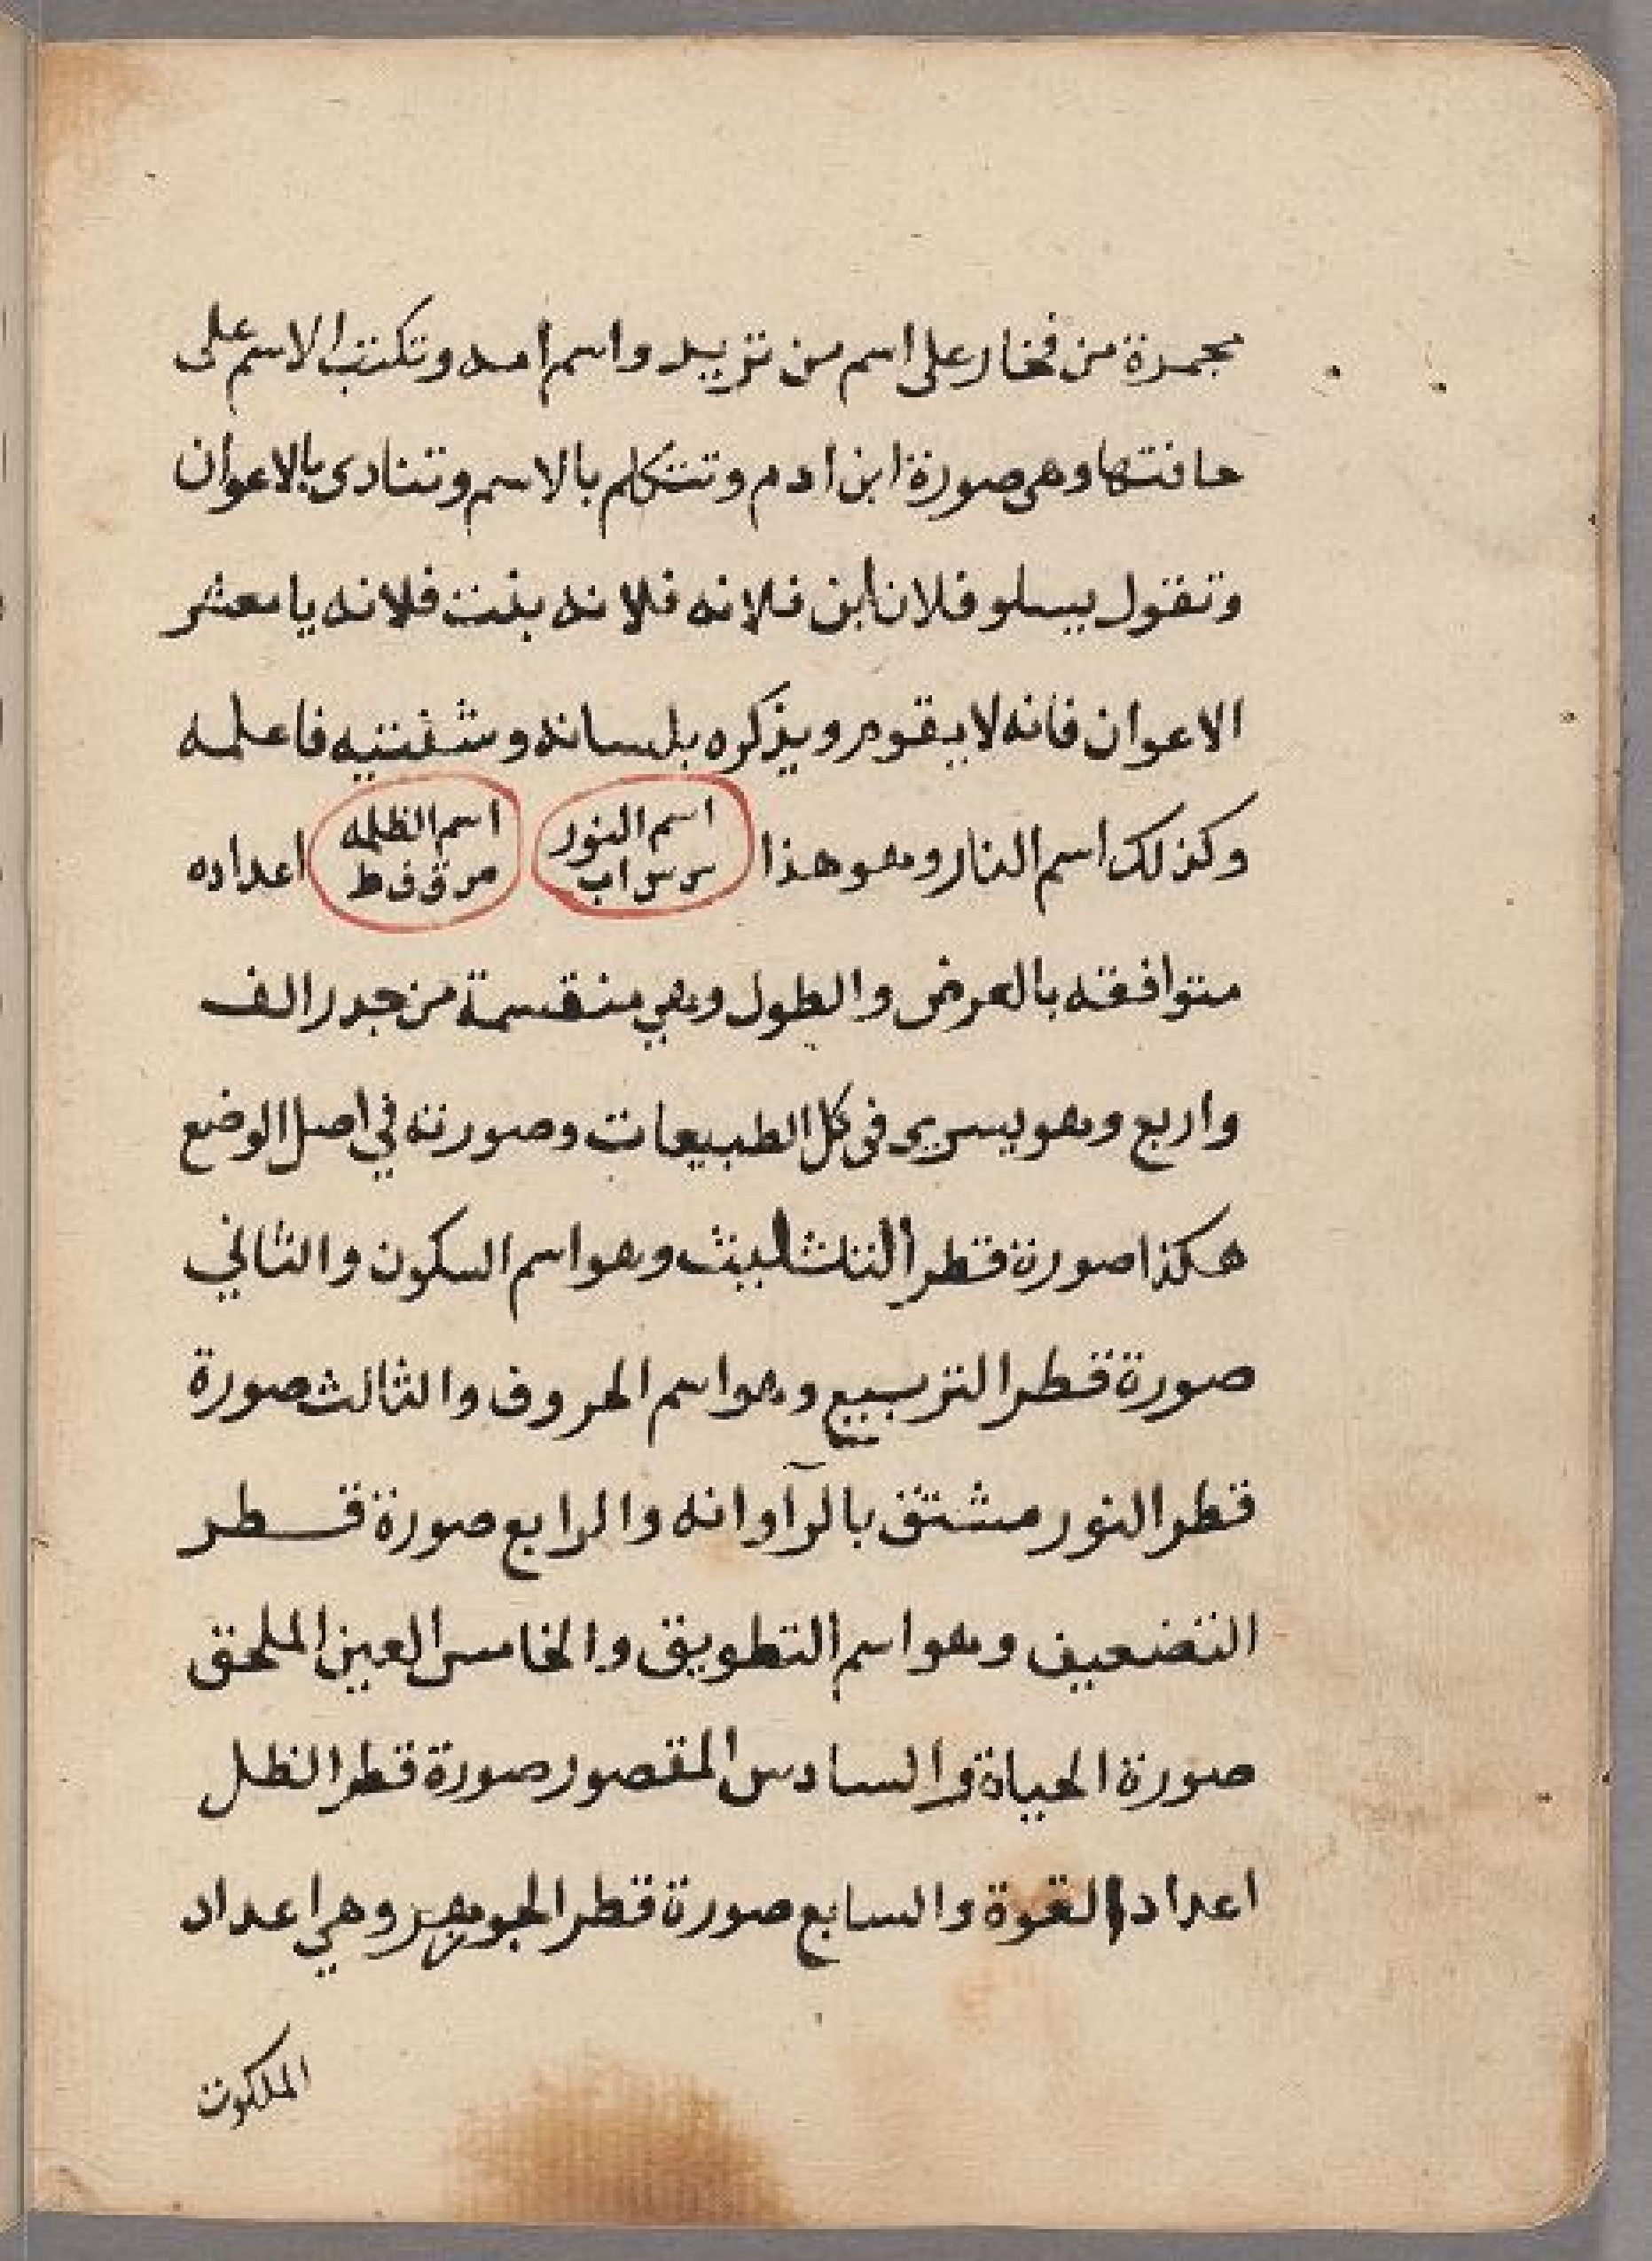 مجمرة من فخار على اسم من تريد واسم امه وتكتب الاسم على
حافتها وهى صورة ابن ادم وتتكلم بالاسم وتنادى بالاعوان
وتقول يسلو فلان ابن فلانه فلانه بنت فلانه يا معشر
الاعوان فانه لا يقوم ويذكره بلسانه وشفتيه فاعلمه
وكذلك اسم النار وهو هذا اسم النور اسم الظلمه اعداده
س س اب
متوافقه بالعرض والطول وهي منقسمة من جدر الف
واربع وهو يسرى فى كل الطبيعات وصورته في اصل الوضع
هكذا صورة قطر التثليث وهو اسم السكون والثاني
صورة قطر التربيع وهو اسم الحروف والثالث صورة
قطر النور مشتق بالرآوانه والرابع صورة قطر
التضعيف وهو اسم التطويق والخامس العين الملحق
صورة الحياة والسادس المقصور صورة قطر الظل
اعداد القوة والسابع صورة قطر الجوهر وهي اعداد
الملكوت